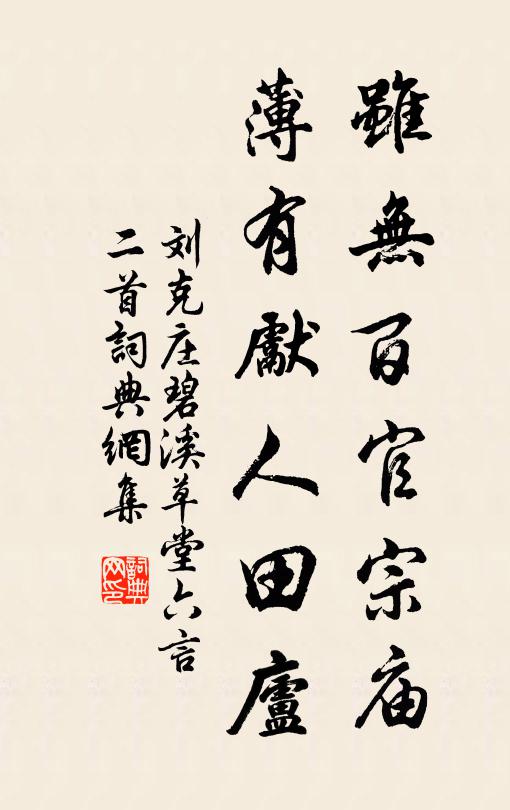 雖無百官宗庙
薄有獻人田廬
刘克庄碧溪草堂六言
二首詞典網集
詞典网印